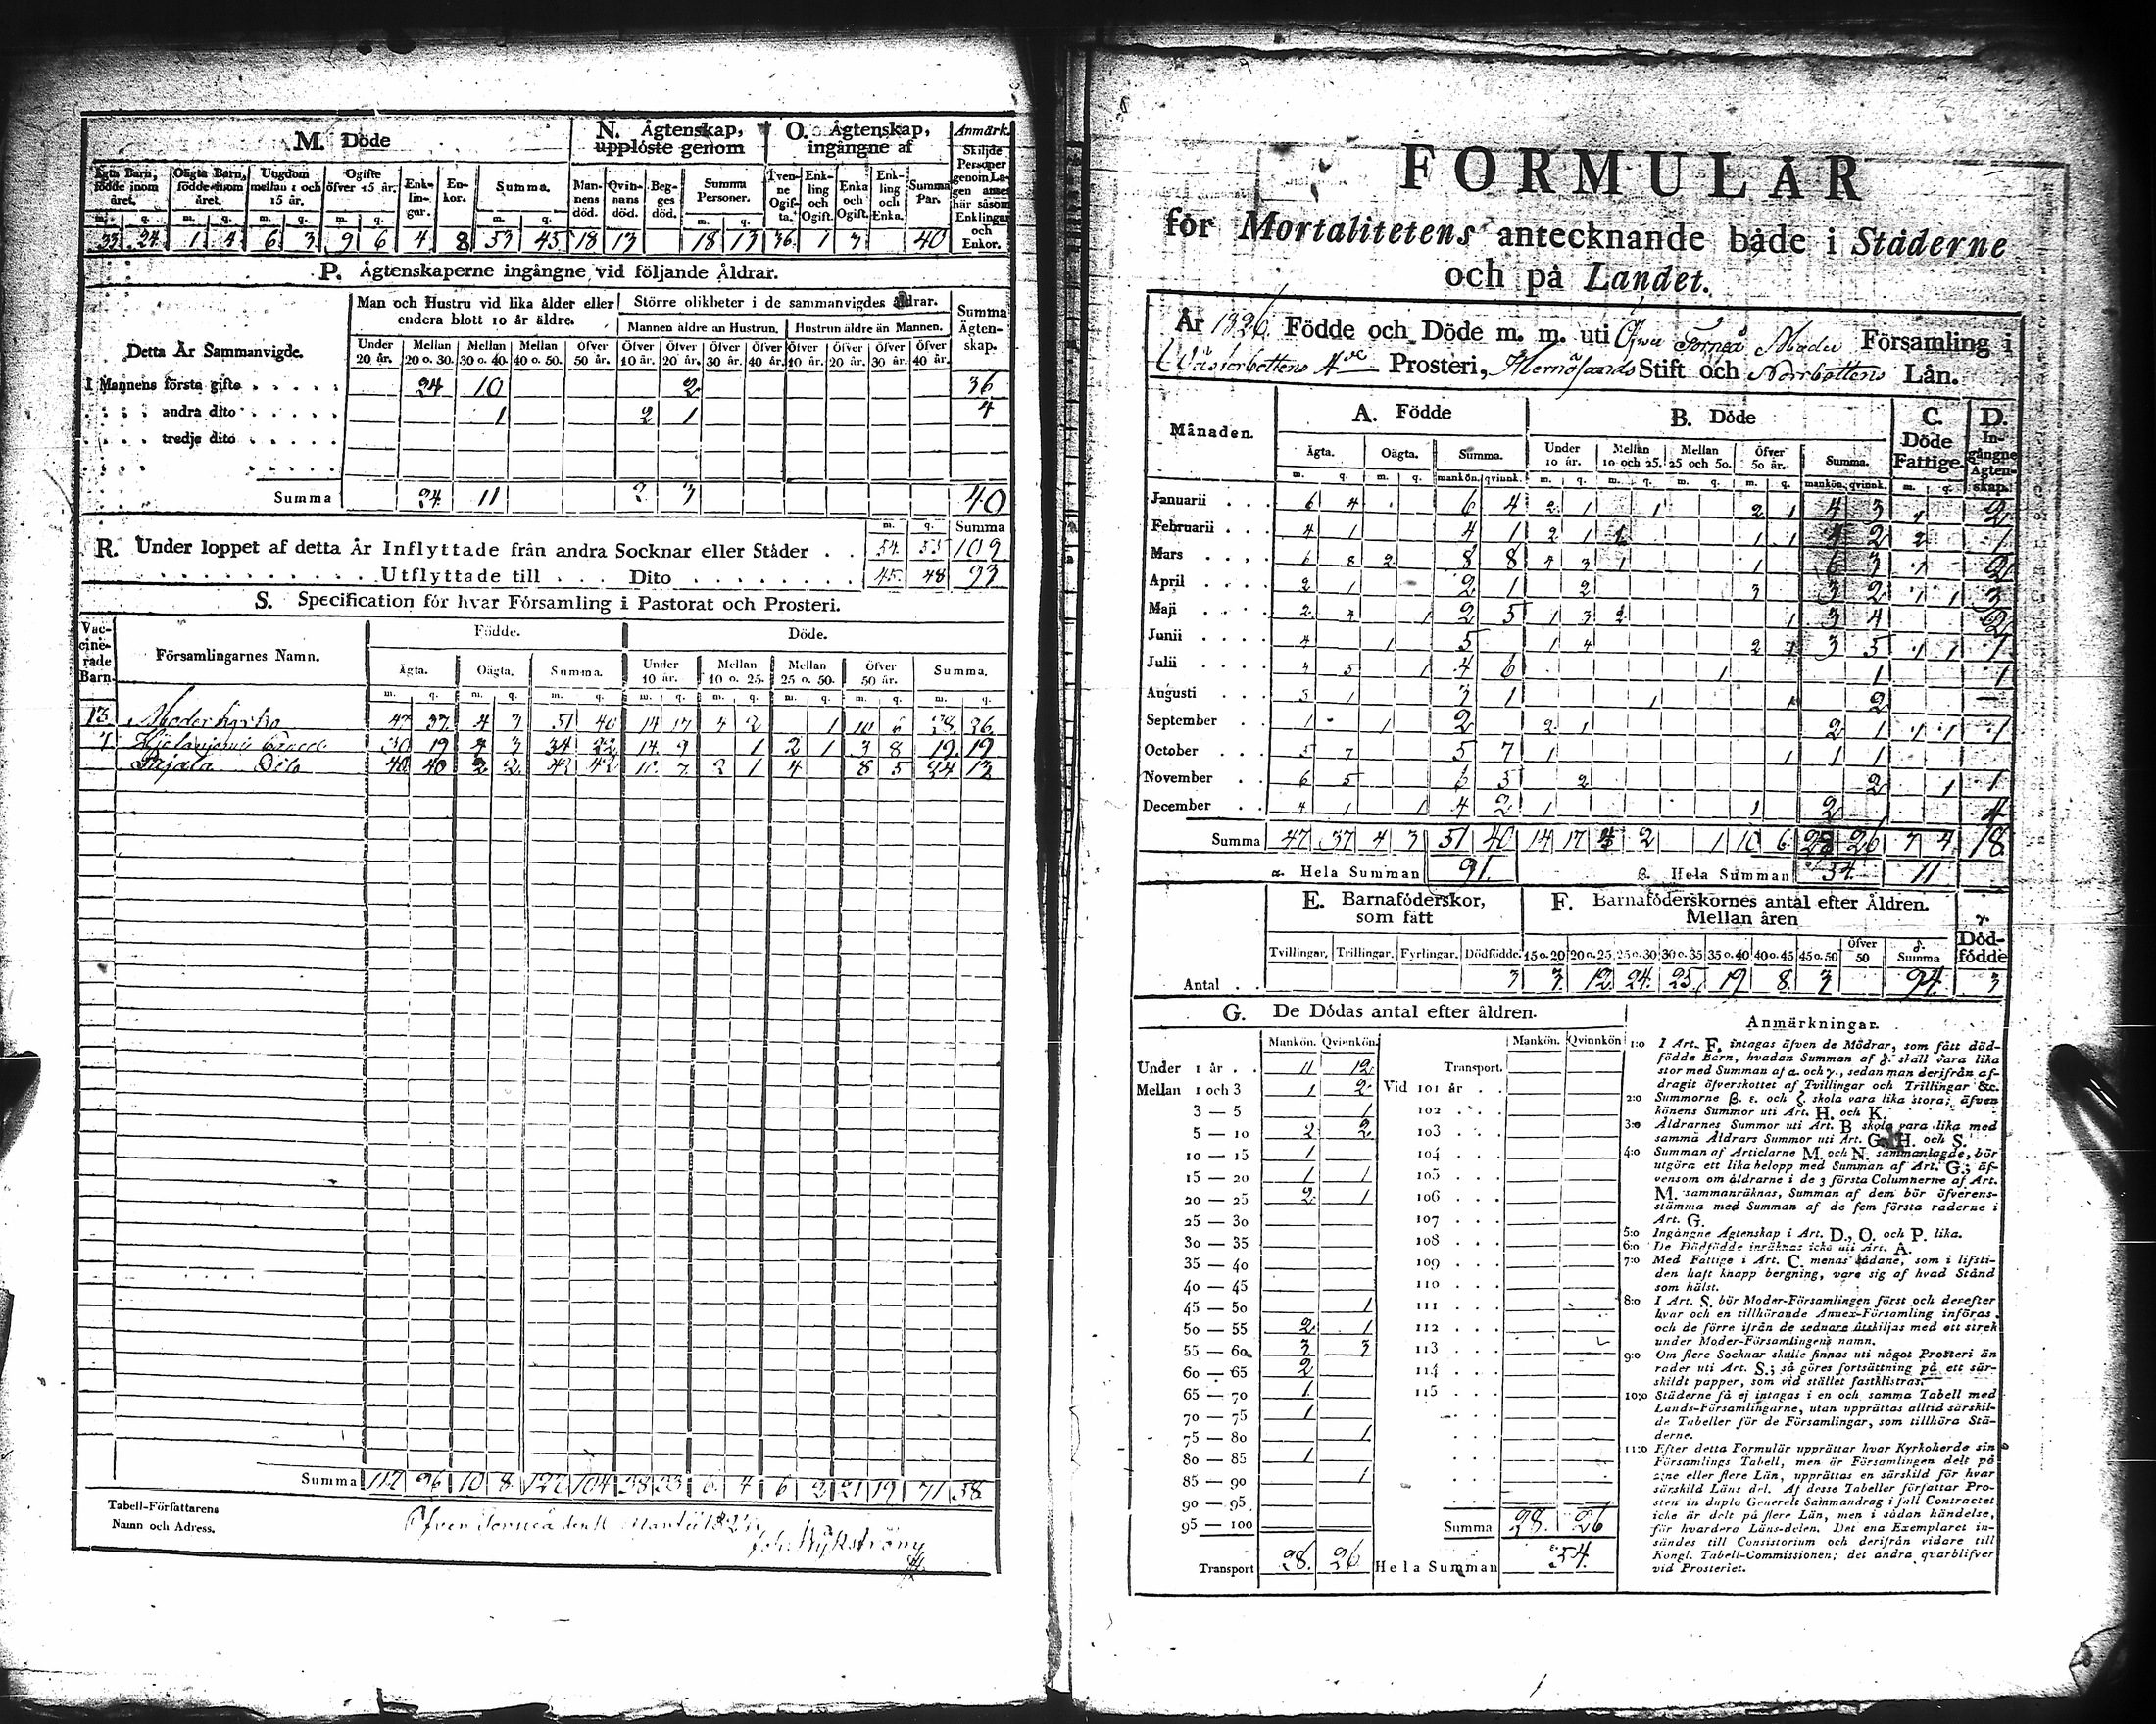 M. Döde
N. Ägtenskap, upplöste genom
O. Ägtenskap, ingångne af
Anmärk. Skiljde Personer genom Lagen antes här såsom Enklingar och Enkor.
Ägta Barn, födde inom året. Oägta Barn, födde inom året. Ungdom mellan 1 och 15 år. Ogifte öfver 15 år. Enklingar. Enkor. Summa. Mannens död. Qvinnans död. Begges död. Summa Personer. Tvenne Ogifta. Enkling och Ogift. Enka och Ogift. Enkling och Enka. Summa Par.
m. q. m. q. m. q. m. q. m. q. m. q.
33 24 1 4 6 3 9 6 4 8 53 45 18 13 18 13 36 1 3 40
P. Ägtenskaperne ingångne vid följande Åldrar.
Detta År Sammanvigde.
Man och Hustru vid lika ålder eller endera blott 10 år äldre.
Större olikheter i de sammanvigdes åldrar.
Summa Ägtenskap.
Mannen äldre än Hustrun. Hustrun äldre än Mannen.
Under 20 år. Mellan 20 o. 30. Mellan 30 o. 40. Mellan 40 o. 50. Öfver 50 år. Öfver 10 år. Öfver 20 år. Öfver 30 år. Öfver 40 år. Öfver 10 år. Öfver 20 år. Öfver 30 år. Öfver 40 år.
I Mannens första gifte . . . . . 24 10 2 36
andra dito . . . . . 1 2 1 4
tredje dito . . . . .
Summa 24 11 2 3 40
m. q. Summa
R. Under loppet af detta År Inflyttade från andra Socknar eller Städer . . 54. 55 109
Utflyttade till . . . Dito . . . . . . . . 45. 48 93
S. Specification för hvar Församling i Pastorat och Prosteri.
Vaccinerade Barn. Församlingarnes Namn. Födde. Döde.
Ägta. Oägta. Summa. Under 10 år. Mellan 10 o. 25. Mellan 25 o. 50. Öfver 50 år. Summa.
m. q. m. q. m. q. m. q. m. q. m. q. m. q. m. q.
13. Moderkyrka 47 37. 4 3 51 40 14 17 4 2 1 10 6 28. 26.
30 19 4 3 34 22 14 9 1 2 1 3 8 19 19
Pajala Dito 40 40 2 2 42 42 10 7 2 1 4 8 5 24 13
Summa 117 96 10 8 127 104 38 33 6 4 6 2 21 19 71 58
Tabell-Författarens Namn och Adress.
FORMULÄR
för Mortalitetens antecknande både i Städerne
och på Landet.
År 1826. Födde och Döde m. m. uti Öfver Torneå Moder Församling i
Västerbottens 4de Prosteri, Hernösands Stift och Norrbottens Län.
Månaden. A. Födde B. Döde C. Döde Fattige. D. Ingångne Ägtenskap.
Ägta. Oägta. Summa. Under 10 år. Mellan 10 och 25. Mellan 25 och 50. Öfver 50 år. Summa.
m. q. m. q. mankön. qvinnk. m. q. m. q. m. q. m. q. mankön. qvinnk. m. q.
Januarii . . . 6 4 6 4 2 1 1 2 1 4 3 1 2
Februarii . . . 4 1 4 1 2 1 1 1 1 4 2 2 1
Mars . . . 6 8 2 8 8 4 3 1 1 6 3 1 2
April . . . . 2 1 2 1 2 3 3 2 1 1 3
Maji . . . . 2 4 1 2 5 1 3 2 1 3 4 2
Junii . . . . 4 1 5 1 4 2 1 3 5 1 1 1
Julii . . . . 4 5 1 4 6 1 1 1
Augusti . . . 3 1 3 1 1 1 2 —
September . . 1 1 2 2 1 2 1 1 1 1
October . . . 5 7 5 7 1 1 1 1
November . . 6 5 6 5 2 2 1 1
December . . 4 1 1 4 2 1 1 2 4
Summa 47 37 4 3 51 40 14 17 4 2 1 10 6 28 26 7 4 18
α. Hela Summan 91. β. Hela Summan 54. 11
E. Barnaföderskor, som fått
F. Barnaföderskornes antal efter Åldren. Mellan åren
γ. Dödfödde
Tvillingar. Trillingar. Fyrlingar. Dödfödde. 15 o. 20 20 o. 25 25 o. 30 30 o. 35 35 o. 40 40 o. 45 45 o. 50 Öfver 50 δ. Summa
Antal . . 3 3. 12 24. 25 19 8. 3 94. 3
G. De Dödas antal efter åldren.
Mankön. Qvinnkön. Mankön. Qvinnkön
Under 1 år . . 11 12 Transport.
Mellan 1 och 3 1 2 Vid 101 år . .
3 — 5 1 102 . . .
5 — 10 2 2 103 . . .
10 — 15 1 104 . . .
15 — 20 1 1 105 . . .
20 — 25 2 1 106 . . .
25 — 30 107 . . .
30 — 35 108 . . .
35 — 40 109 . . .
40 — 45 110 . . .
45 — 50 1 111 . . .
50 — 55 2 1 112 . . .
55 — 60 3 3 113 . . .
60 — 65 2 114 . . .
65 — 70 1 115 . . .
70 — 75 1
75 — 80 1
80 — 85 1
85 — 90 1
90 — 95
95 — 100 Summa 28. 26
Transport 28. 26 Hela Summan 54.
Anmärkningar.
1:o I Art. F. intagas äfven de Mödrar, som fått död-
födde Barn, hvadan Summan af δ. skall vara lika
stor med Summan af α. och γ., sedan man derifrån af-
dragit öfverskottet af Tvillingar och Trillingar &c.
2:o Summorne β. ε. och ζ. skola vara lika stora; äfven
könens Summor uti Art. H. och K.
3:o Åldrarnes Summor uti Art. B skola vara lika med
samma Åldrars Summor uti Art. G. H. och S.
4:o Summan af Articlarne M. och N. sammanlagde, bör
utgöra ett lika belopp med Summan af Art. G.; äf-
vensom om åldrarne i de 3 första Columnerne af Art.
M. sammanräknas, Summan af dem bör öfverens-
stämma med Summan af de fem första raderne i
Art. G.
5:o Ingångne Ägtenskap i Art. D., O. och P. lika.
6:o De Dödfödde inräknas icke uti Art. A.
7:o Med Fattige i Art. C. menas sådane, som i lifsti-
den haft knapp bergning, vare sig af hvad Stånd
som hälst.
8:o I Art. S. bör Moder-Församlingen först och derefter
hvar och en tillhörande Annex-Församling införas
och de förre ifrån de sednare åtskiljas med ett streck
under Moder-Församlingens namn.
9:o Om flere Socknar skulle finnas uti något Prosteri än
rader uti Art. S.; så göres fortsättning på ett sär-
skildt papper, som vid stället fastklistras.
10:o Städerne få ej intagas i en och samma Tabell med
Lands-Församlingarne, utan upprättas alltid särskil-
de Tabeller för de Församlingar, som tillhöra Stä-
derne.
11:o Efter detta Formulär upprättar hvar Kyrkoherde sin
Församlings Tabell, men är Församlingen delt på
2:ne eller flere Län, upprättas en särskild för hvar
särskild Läns del. Af desse Tabeller författar Pro-
sten in duplo Generelt Sammandrag i fall Contractet
icke är delt på flere Län, men i sådan händelse,
för hvardera Läns-delen. Det ena Exemplaret in-
sändes till Consistorium och derifrån vidare till
Kongl. Tabell-Commissionen; det andra qvarblifver
vid Prosteriet.